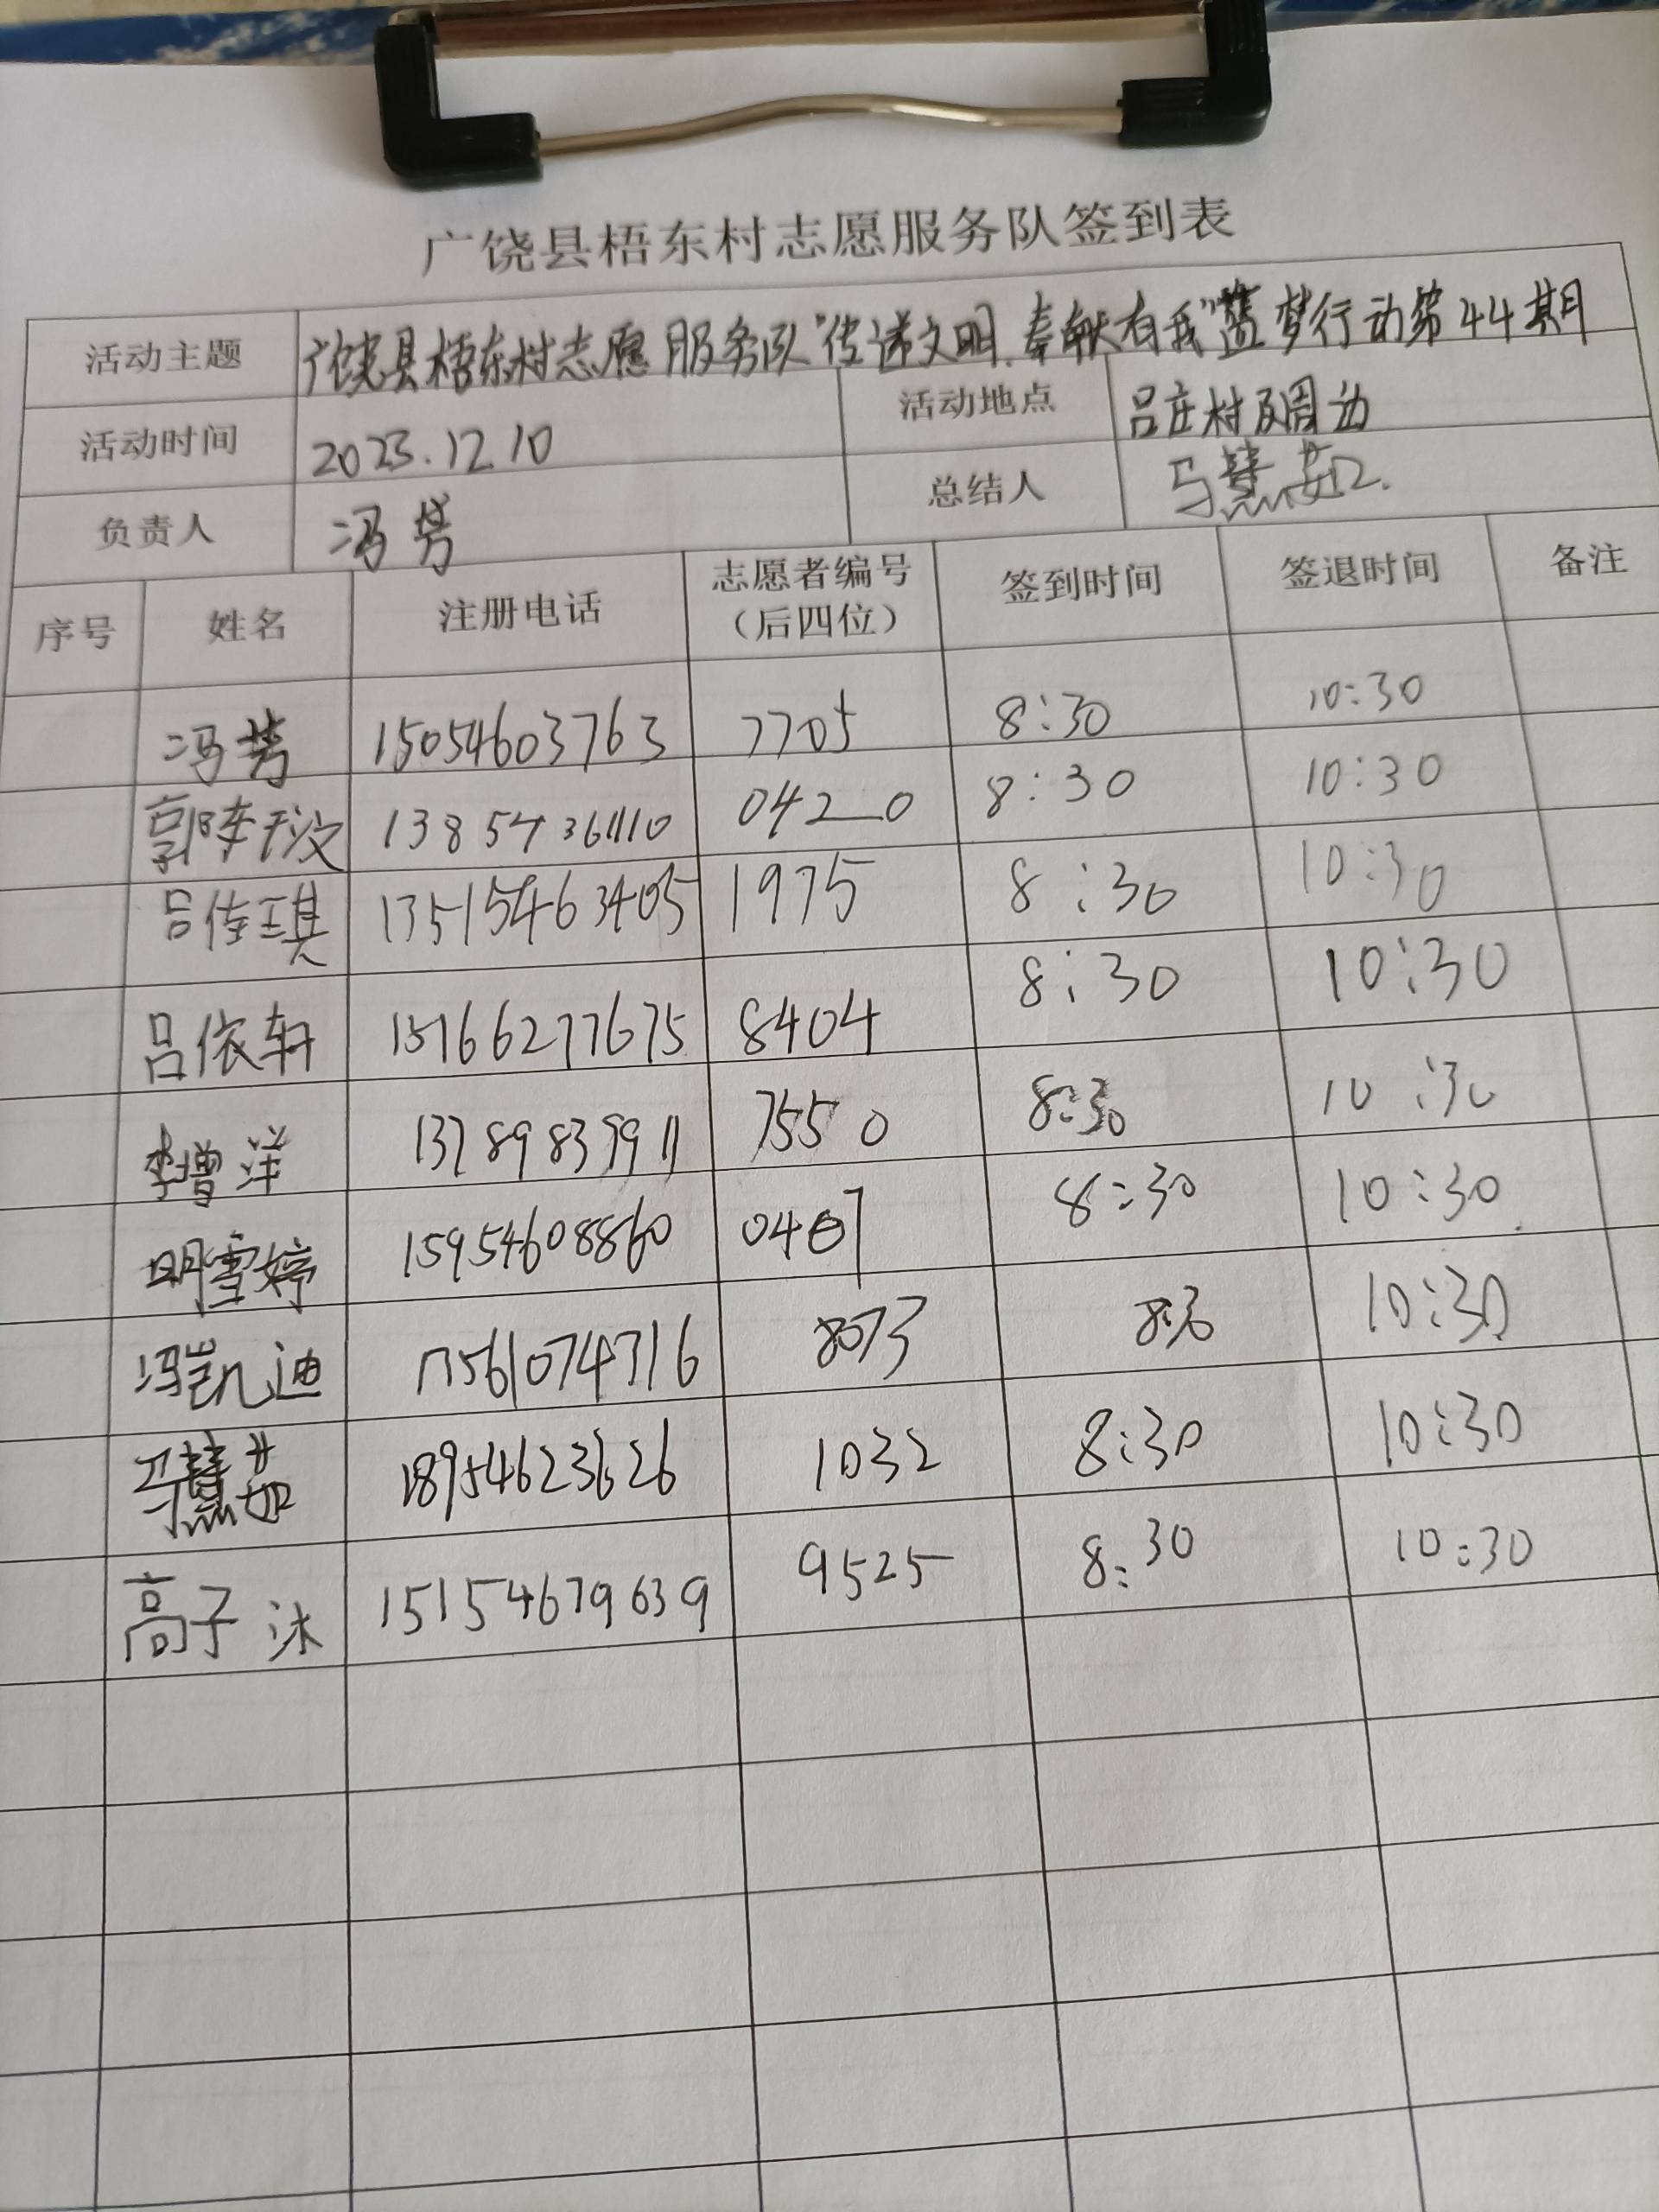 广饶县梧东村志愿服务队签到表
活动主题 广饶县梧东村志愿服务队"传递文明.奉献有我"蓝梦行动第44期
活动时间 2023.12.10 活动地点 吕庄村及周边
负责人 冯芳 总结人 马慧茹.
序号 姓名 注册电话 志愿者编号（后四位） 签到时间 签退时间 备注
冯芳 15054603763 7705 8:30 10:30
13854361110 0420 8:30 10:30
吕佳琪 13515463405 1975 8:30 10:30
吕依轩 15166277675 8404 8:30 10:30
李增洋 13789839911 7550 8:30 10:30
明雪婷 15954608860 8:30 10:30
冯凯迪 17561074716 8073 8:30 10:30
马慧茹 18954623626 1032 8:30 10:30
高子沐 15154679639 9525 8:30 10:30